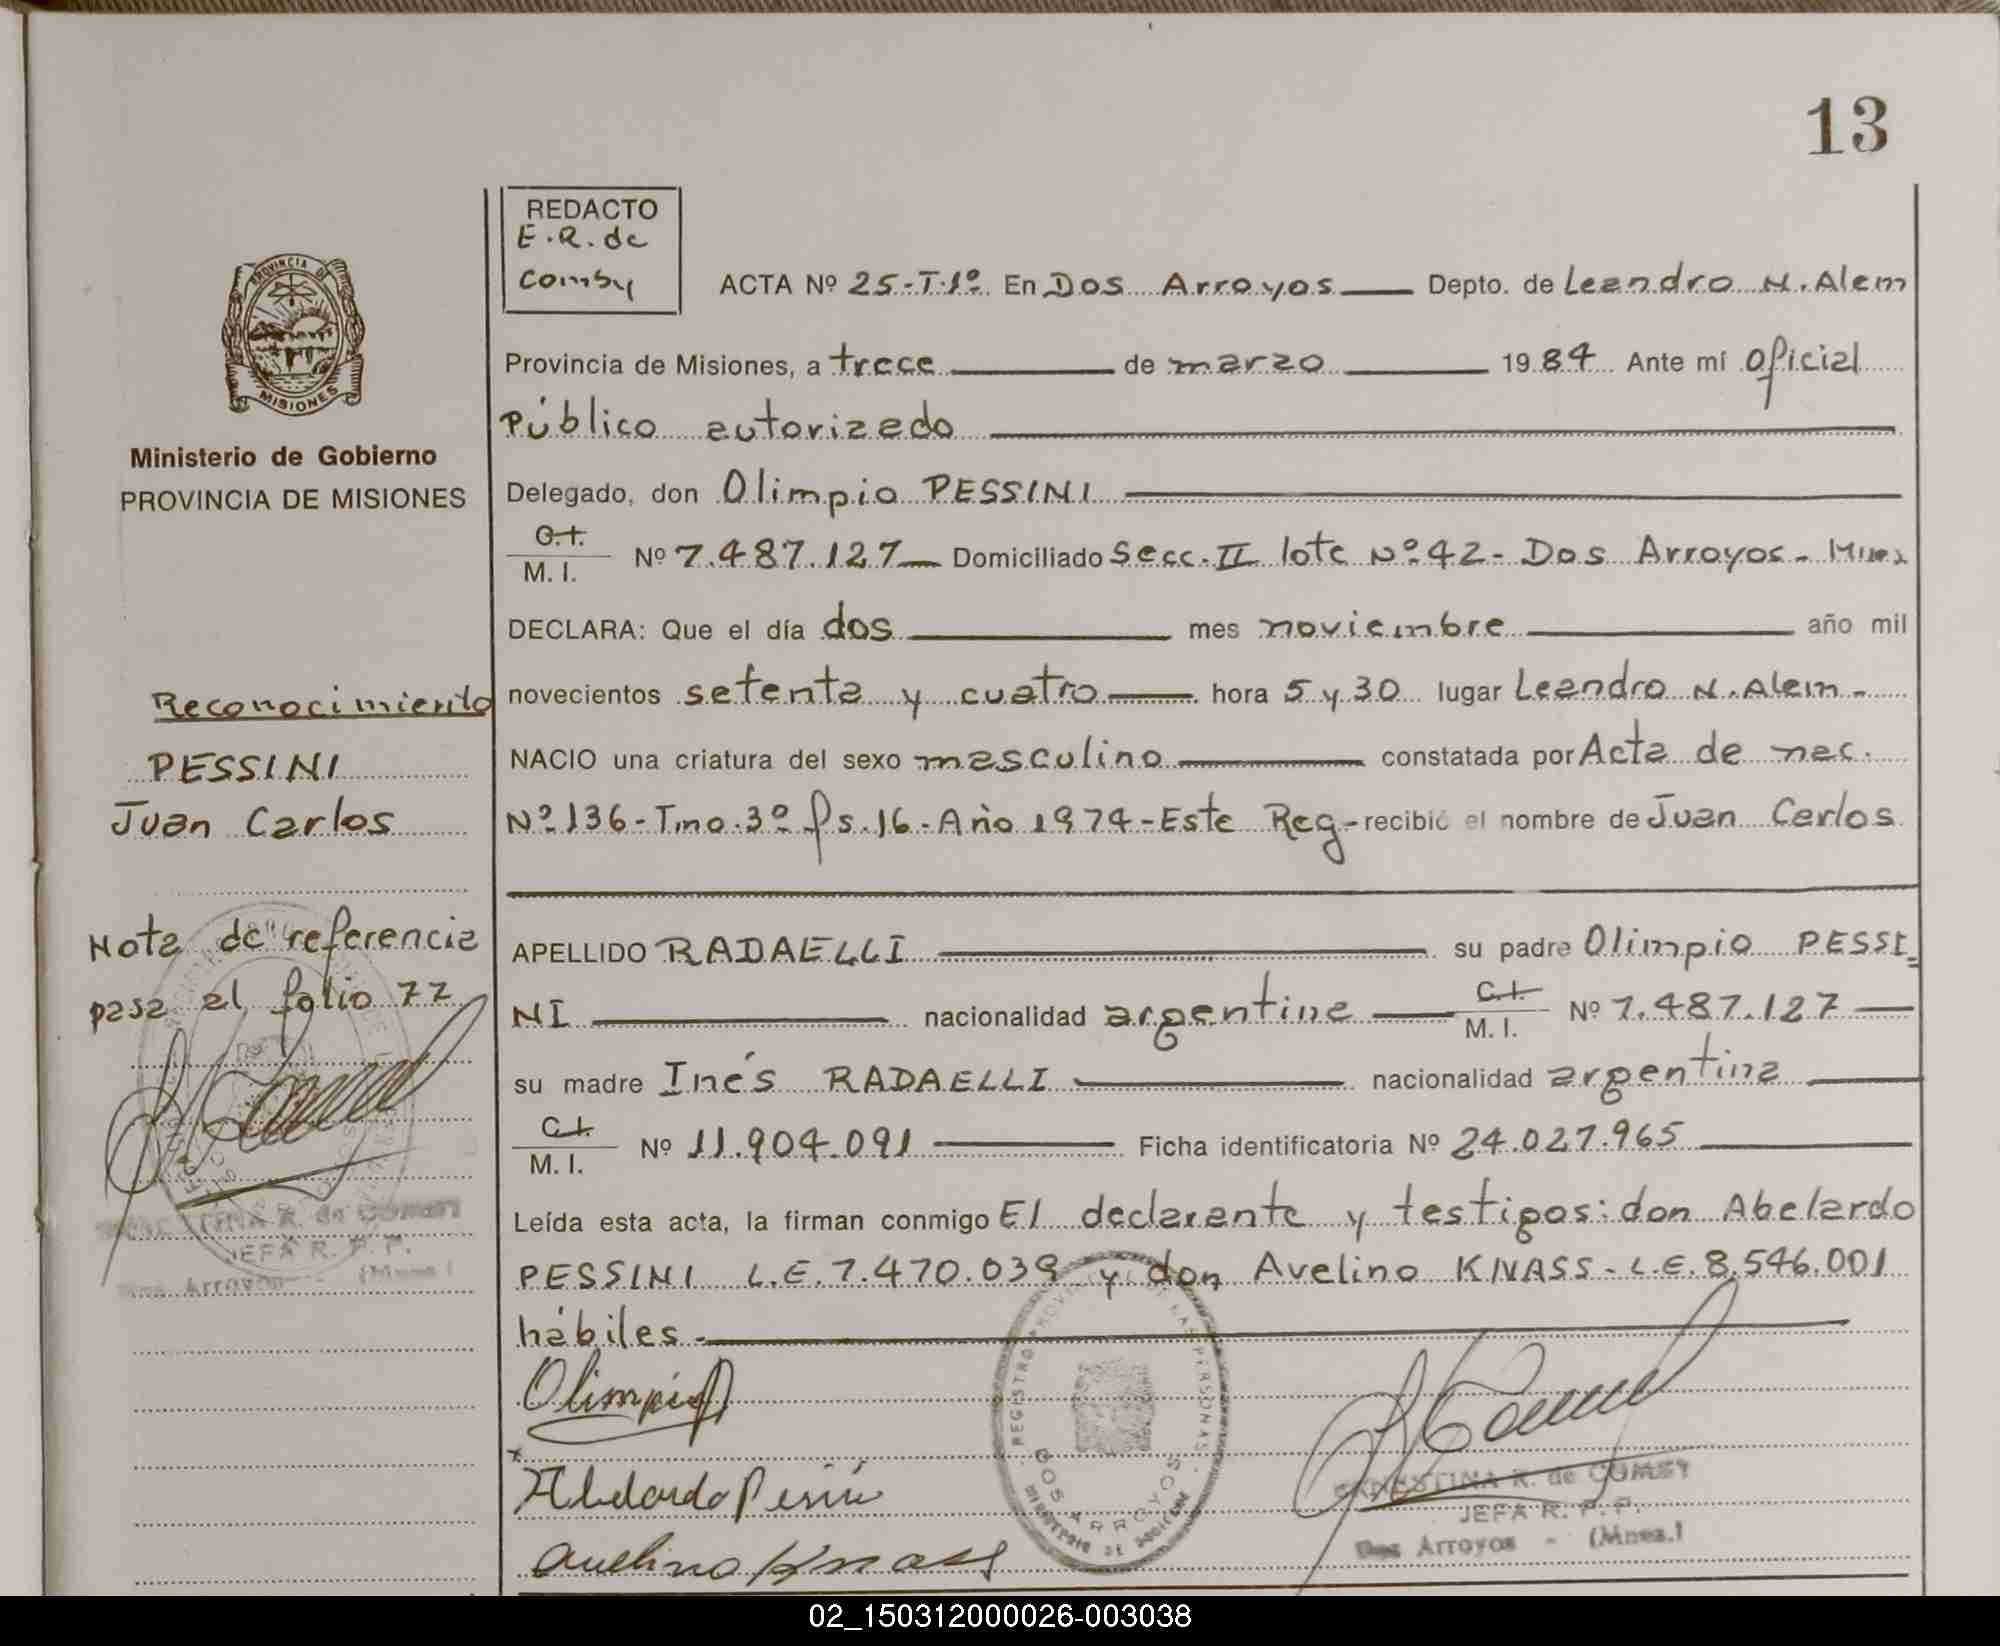 13
REDACTO
E.R. de
Comby
ACTA Nº 25-T-1º En Dos Arroyos Depto. de Leandro N. Alem
Provincia de Misiones, a trece de marzo 1984 Ante mí Oficial
Público autorizado
Delegado, don Olimpio PESSINI
C.I.
M. I. Nº 7.487.127 Domiciliado Secc. II lote Nº 42 - Dos Arroyos - Mnes
DECLARA: Que el día dos mes noviembre año mil
novecientos setenta y cuatro hora 5 y 30 lugar Leandro N. Alem -
NACIO una criatura del sexo masculino constatada por Acta de nac.
Nº 136 - Tmo. 3º fs. 16 - Año 1974 - Este Reg - recibió el nombre de Juan Carlos
APELLIDO RADAELLI su padre Olimpio PESSI=
NI nacionalidad argentina C.I. M. I. Nº 7.487.127
su madre Inés RADAELLI nacionalidad argentina
C.I.
M. I. Nº 11.904.091 Ficha identificatoria Nº 24.027.965
Leída esta acta, la firman conmigo El declarante y testigos: don Abelardo
PESSINI L.E. 7.470.039 y don Avelino KNASS - L.E. 8.546.001
hábiles.-
Olimpio
Abelardo Pesini
Avelino Knass
REGISTRO PROVINCIAL DE LAS PERSONAS
DOS ARROYOS
ERNESTINA R. de COMBY
JEFA R. P. P.
Dos Arroyos - (Mnes.)
PROVINCIA DE
MISIONES
Ministerio de Gobierno
PROVINCIA DE MISIONES
Reconocimiento
PESSINI
Juan Carlos
Nota de referencia
pasa al folio 77
ERNESTINA R. de COMBY
JEFA R. P. P.
Dos Arroyos - (Mnes.)
02_150312000026-003038